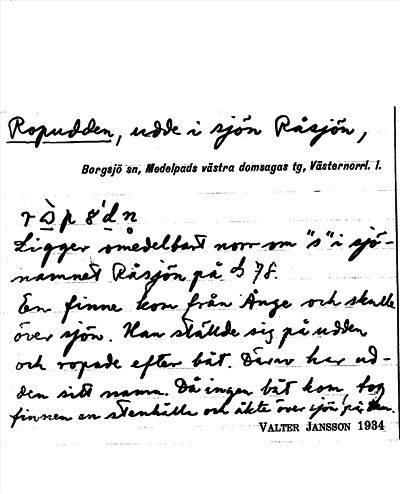 Ropudden, udde i sjön Råsjön,
Borgsjö sn, Medelpads västra domsagas tg, Västernorrl. l.
Ligger omedelbart norr om "s" i sjö-
namnet Råsjön på S 78.
En finne kom från Ånge och skulle
över sjön. Han ställde sig på udden
och ropade efter båt. Därav har ud-
den sitt namn. Då ingen båt kom, tog
finnen en stenhälle och åkte över sjön på den.
VALTER JANSSON 1934